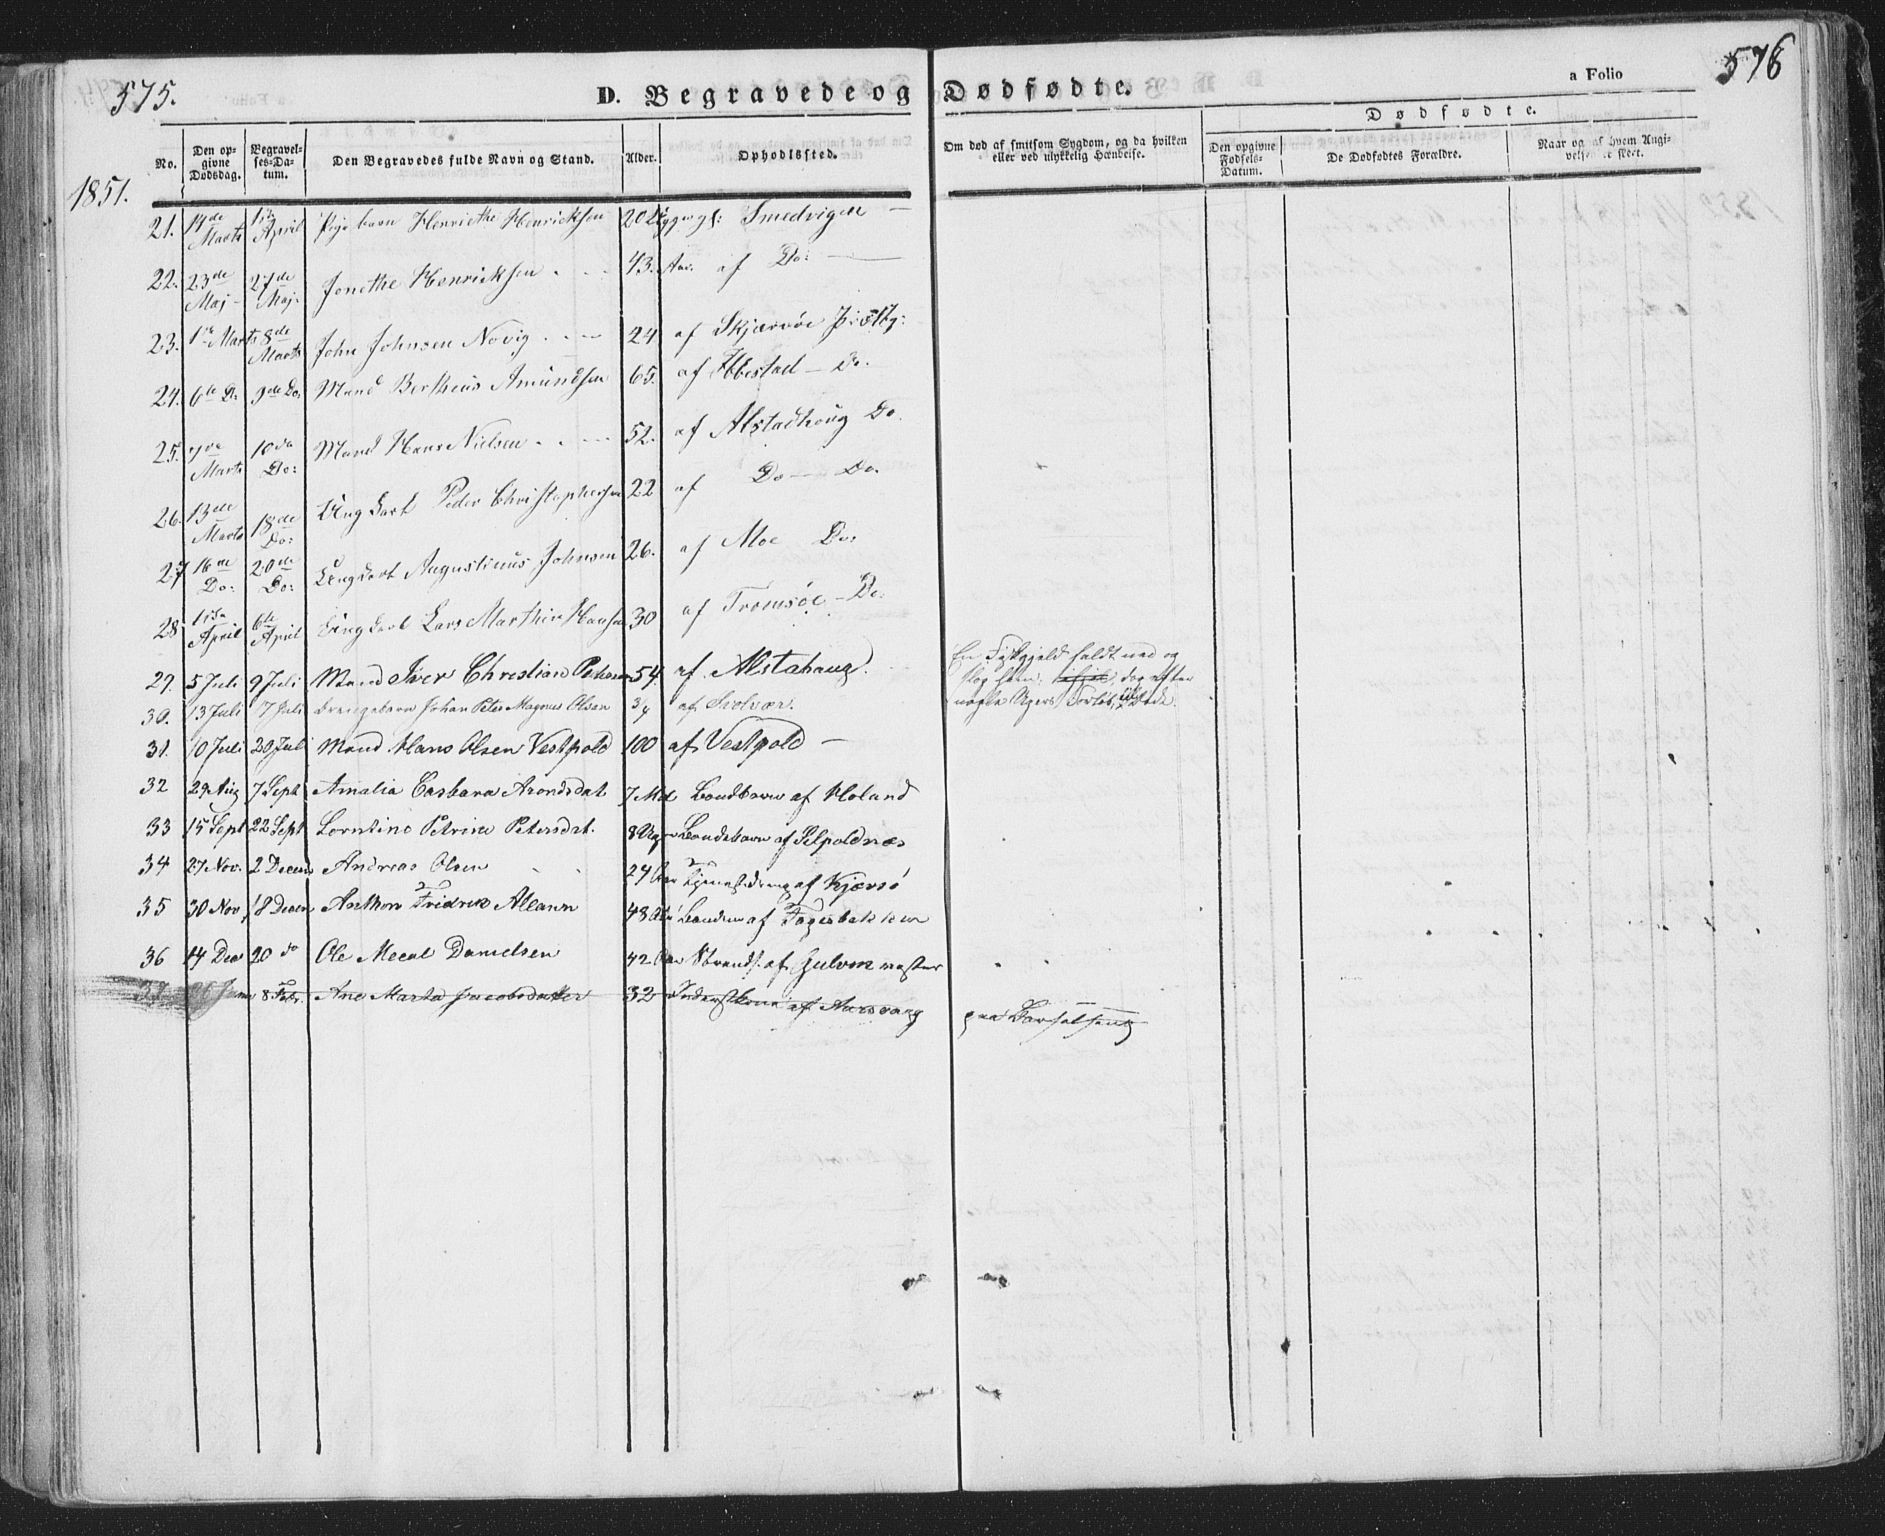 575.
D. Begravede og Dødfødte.
a Folio
576
1851.
No.
Den opgivne Dødsdag.
Begravelses-Datum.
Den Begravedes fulde Navn og Stand.
Alder.
Opholdssted.
Om død af smitsom Sygdom, og da hvilken eller ved ulykkelig Hændelse.
Dødfødte.
Den opgivne Fødsels-Datum.
De Dødfødtes Forældre.
Naar og af hvem Angivelsen er skeet.
21. 14de Marts April Pigebarn Henriethe Henricksen Smedvigen
22. 23de Maj 27de Maj Jonethe Henricksen 43. Aar. af Do:
23. 1ste Marts 8de Marts John Johnsen Novig 24 af Skjærvøe
24. 6te Do: 9de Do: Mand Bertheus Amundsen 65. af Ibestad Do.
25. 7de Marts 10de Do: Mand Hans Nielsen 52. af Alstadhoug Do.
26. 13de Marts 18de Do: Ung Karl Peder Christophersen 22 af Do Do.
27 16de Do: 20de Do: Ung Karl Augustinus Johnsen 26. af Moe Do:
28 April 6te April Ung Karl Lars Marthin Hansen 30 af Tromsøe Do.
29. 5 Juli 9 Juli Mand Iver Christian Petersen 54. af Alstahaug. En Fiskhjeld faldt ned og
slog ham, dog efter
nogle Ugers Forløb døde.
30. 13 Juli 7 Juli Drengebarn Johan Peter Magnus Olsen 3/4 af
31. 10 Juli 20 Juli Mand Hans Olsen Vestpold 100 af Vestpold
32 29 Aug 7 Sept Amalia Casbara Arondsdat 7 Md Bondbarn af Holand
33 15 Sept 22 Sept Lorntine Petrine Petersdat. 8 Uger Bondebarn af Selpoldnæs
34 27 Nov. 2 Decem Andreas Olsen 24 Aar Tjenestdreng af Kjærsö
35 30 Nov 18 Decem Anthon Fridrik Aleann 48 Aar Bonden af Fagerbakken
36 14 Dec 20 do Ole Mecal Danielsen 42 Aar Strands. af
37. 8 Febr. Ane Marta Jacobsdatter 32 Inderstkone af Aarsvang paa Barselseng